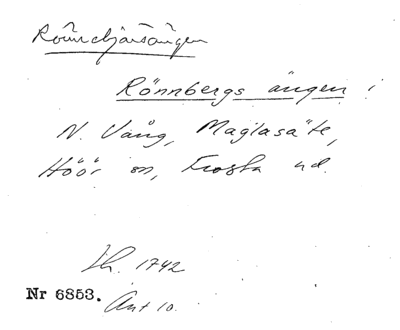 Rönnbergs ängen i
N. Vång, Maglasäte,
Höör sn, Frosta hd.
Lh. 1742
Nr 6853. Ant 10.